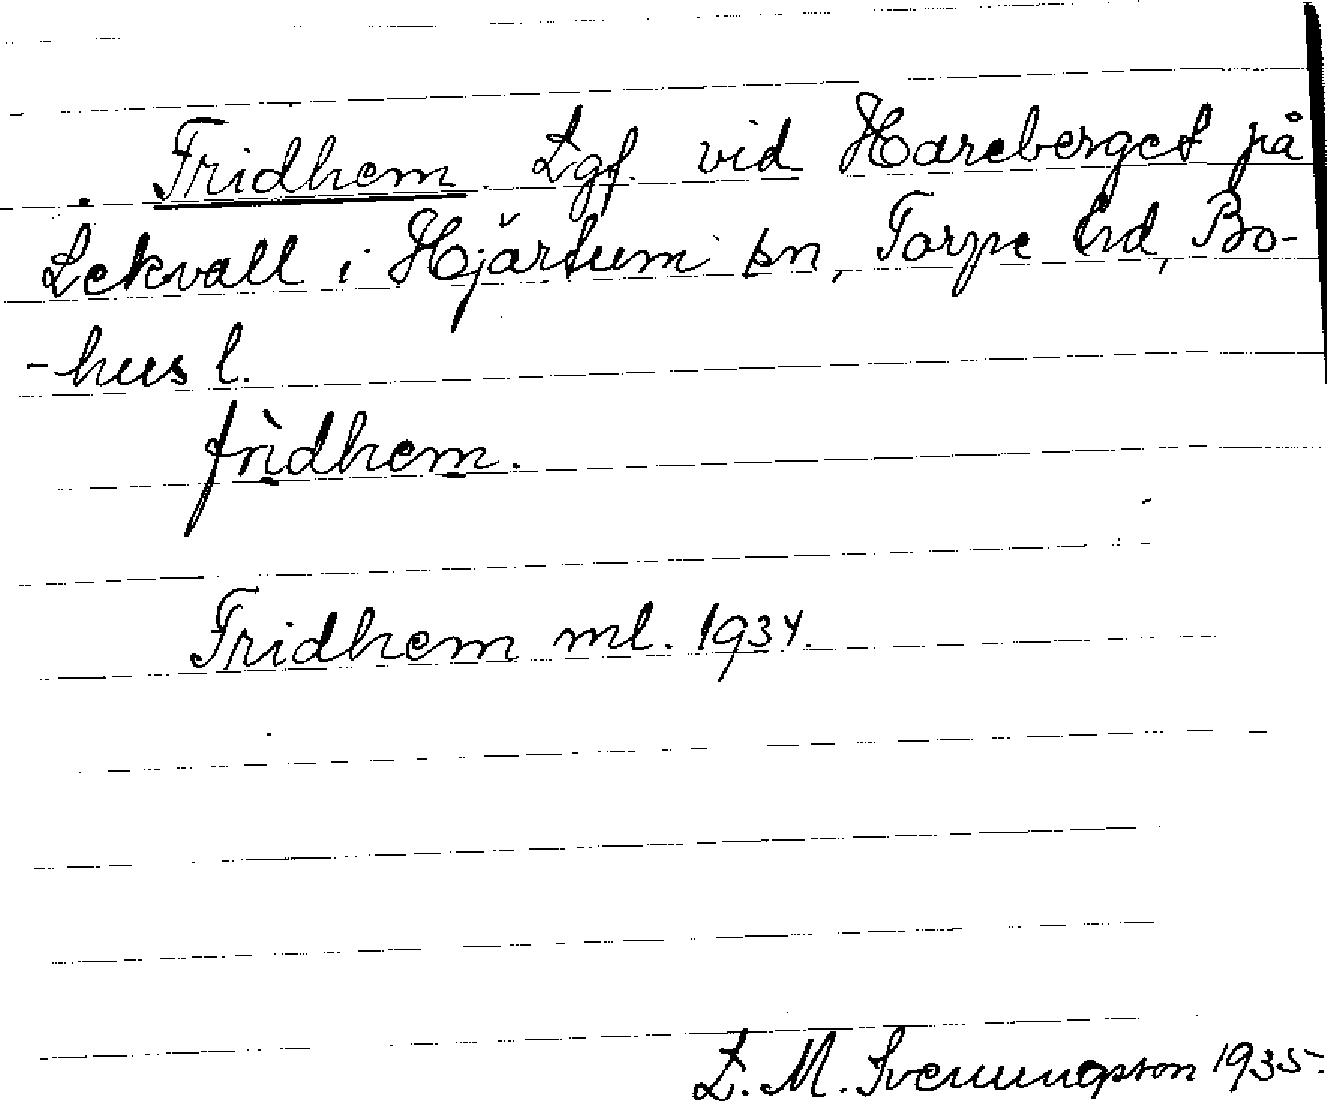 Fridhem. Lgf. vid Hareberget på
Lekvall i Hjärtum sn, Torpe hd, Bo-
-hus l.
frìdhem.
Fridhem ml. 1934.
L. M. Svenungsson 1935.